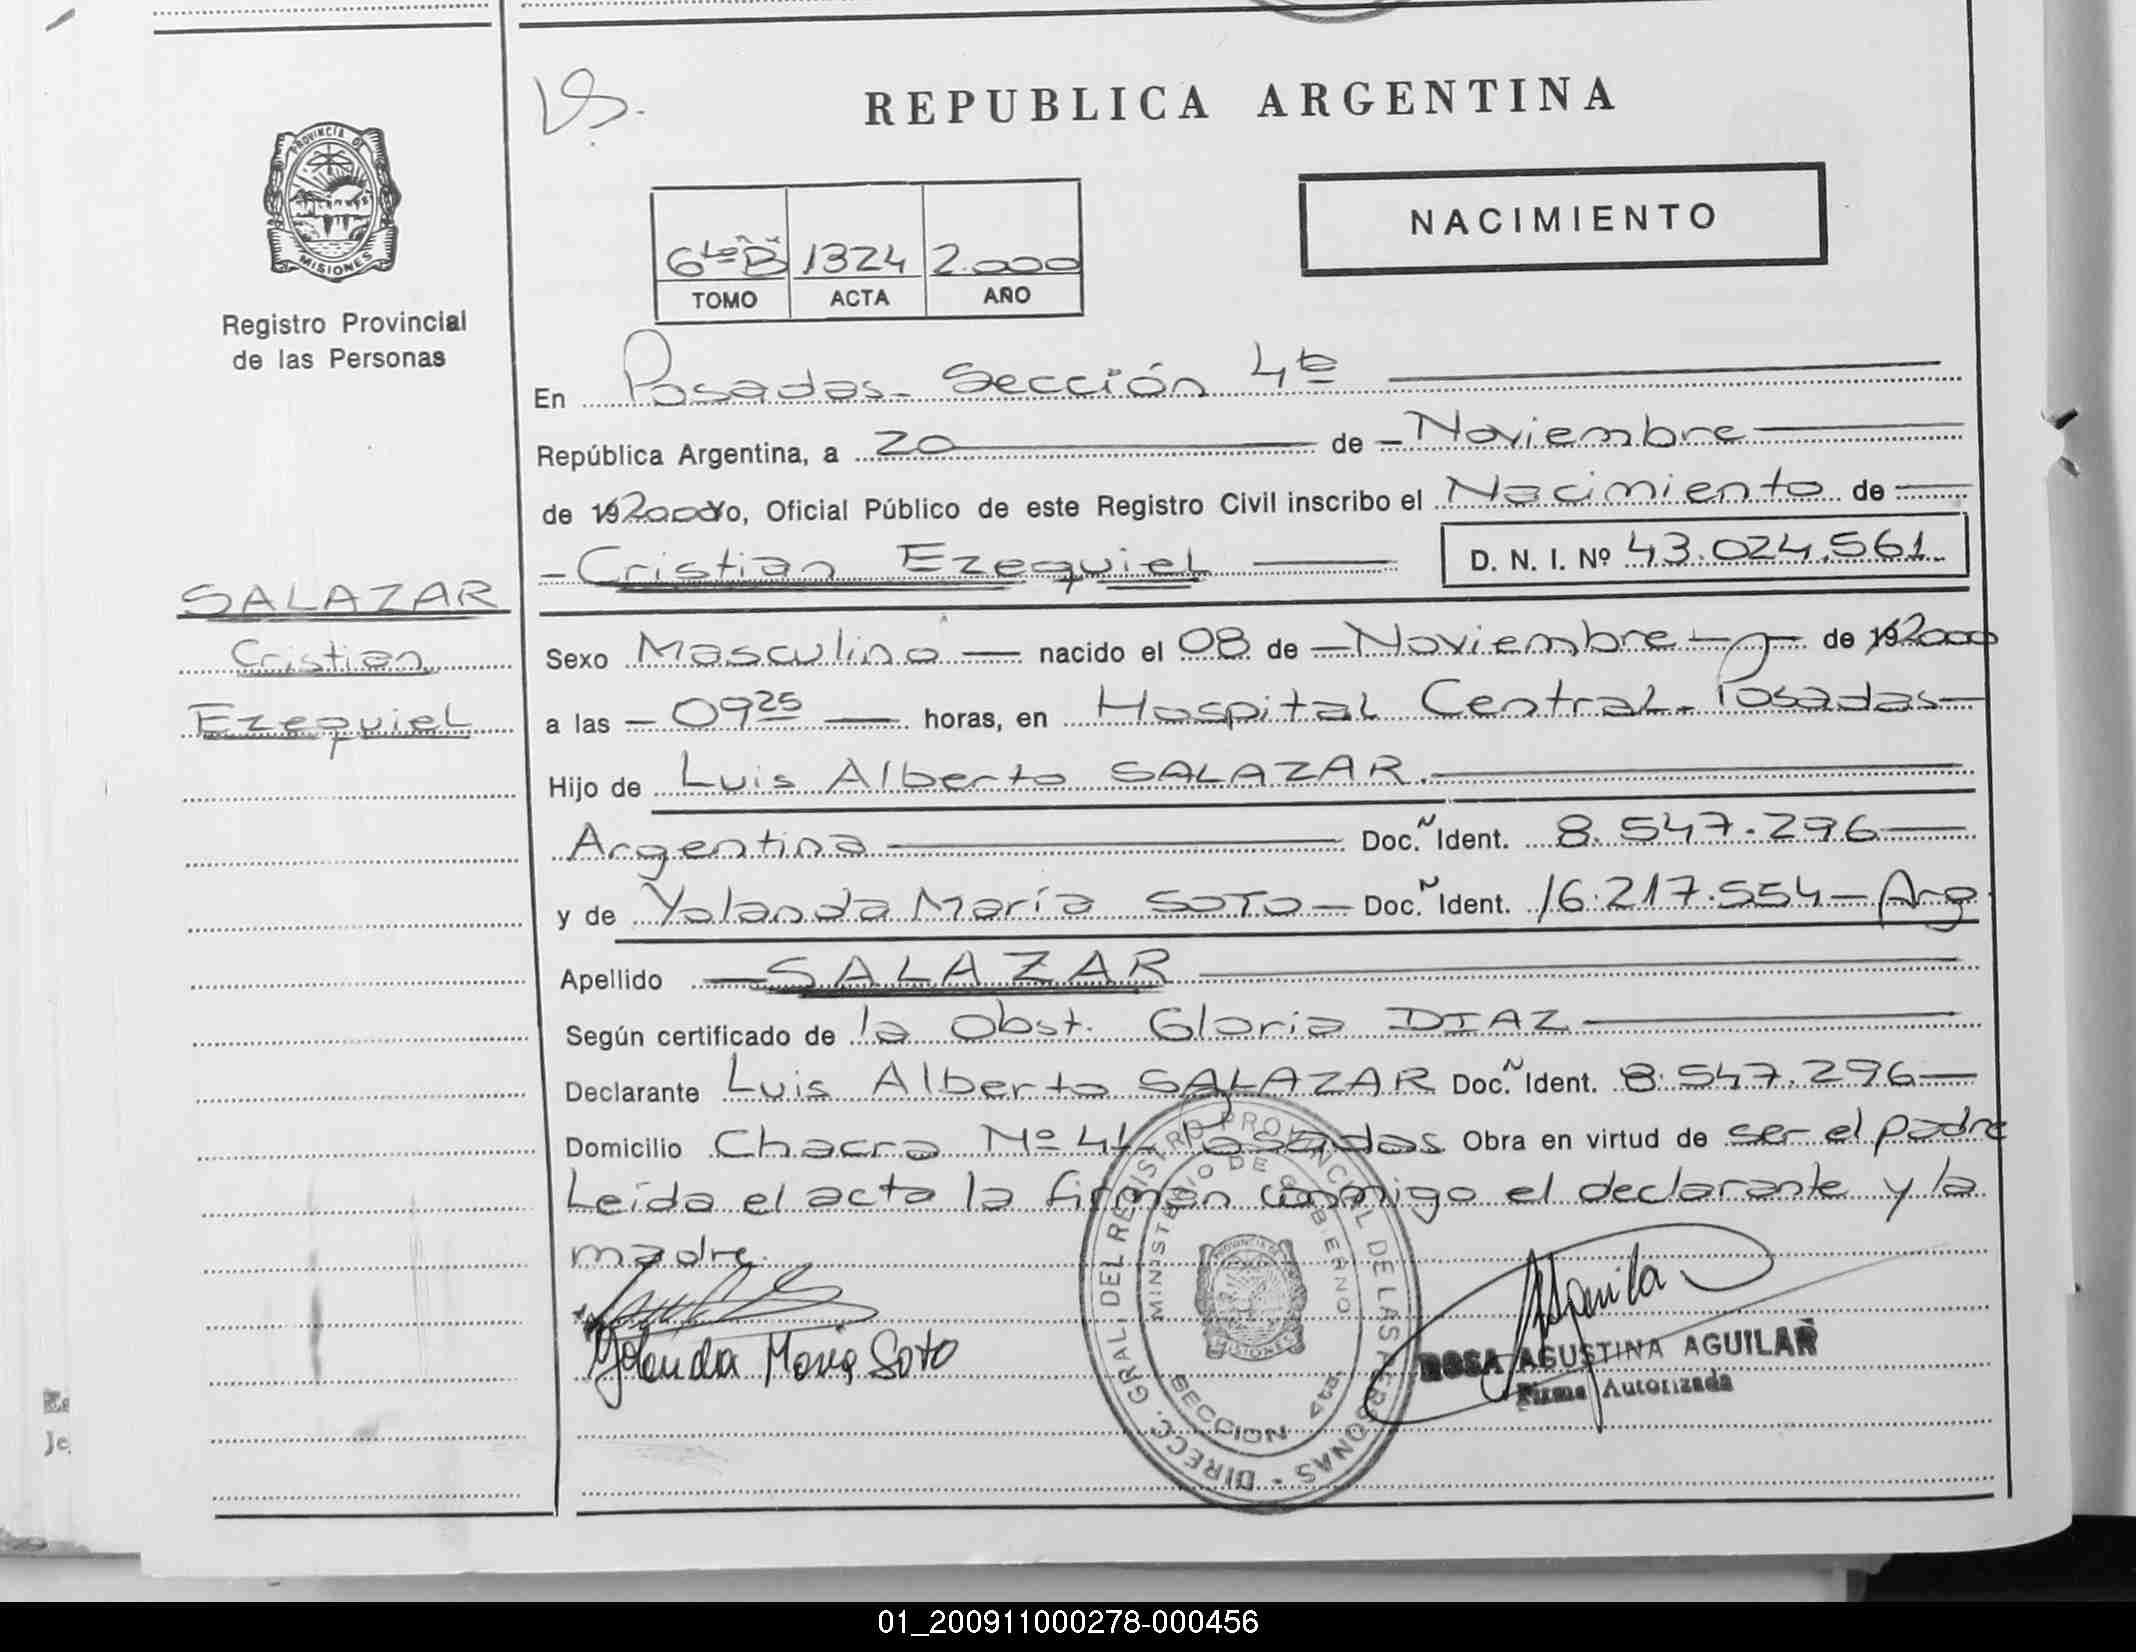 REPUBLICA ARGENTINA
PROVINCIA DE
MISIONES
Registro Provincial
de las Personas
NACIMIENTO
6to "B" 1324 2.000
TOMO ACTA AÑO
En Posadas - Sección 4ta
República Argentina, a 20 de Noviembre
de 19 2000 Yo, Oficial Público de este Registro Civil inscribo el Nacimiento de
Cristian Ezequiel D. N. I. Nº 43.024.561
SALAZAR
Cristian
Ezequiel
Sexo Masculino nacido el 08 de Noviembre de 19 2000
a las 09 25 horas, en Hospital Central - Posadas
Hijo de Luis Alberto SALAZAR
Argentina Doc. Ident. 8.547.296
y de Yolanda María SOTO Doc. Ident. 16.217.554 - Arg.
Apellido SALAZAR
Según certificado de la Obst. Gloria DIAZ
Declarante Luis Alberto SALAZAR Doc. Ident. 8.547.296
Domicilio Chacra Nº 41 - Posadas Obra en virtud de ser el padre
Leída el acta la firman conmigo el declarante y la
madre.
Yolanda Maria Soto
DIRECC. GRAL. DEL REGISTRO PROVINCIAL DE LAS PERSONAS
MINISTERIO DE GOBIERNO
PROVINCIA DE
MISIONES
SECCION 4ta.
Aguilar
ROSA AGUSTINA AGUILAR
Firma Autorizada
01_200911000278-000456